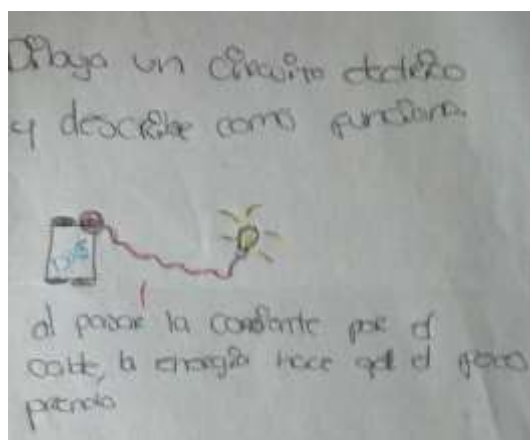 Dibuja un circuito electrico
y describe como funciona.
al pasar la corriente por el
cable, la energia hace que el foco
prenda